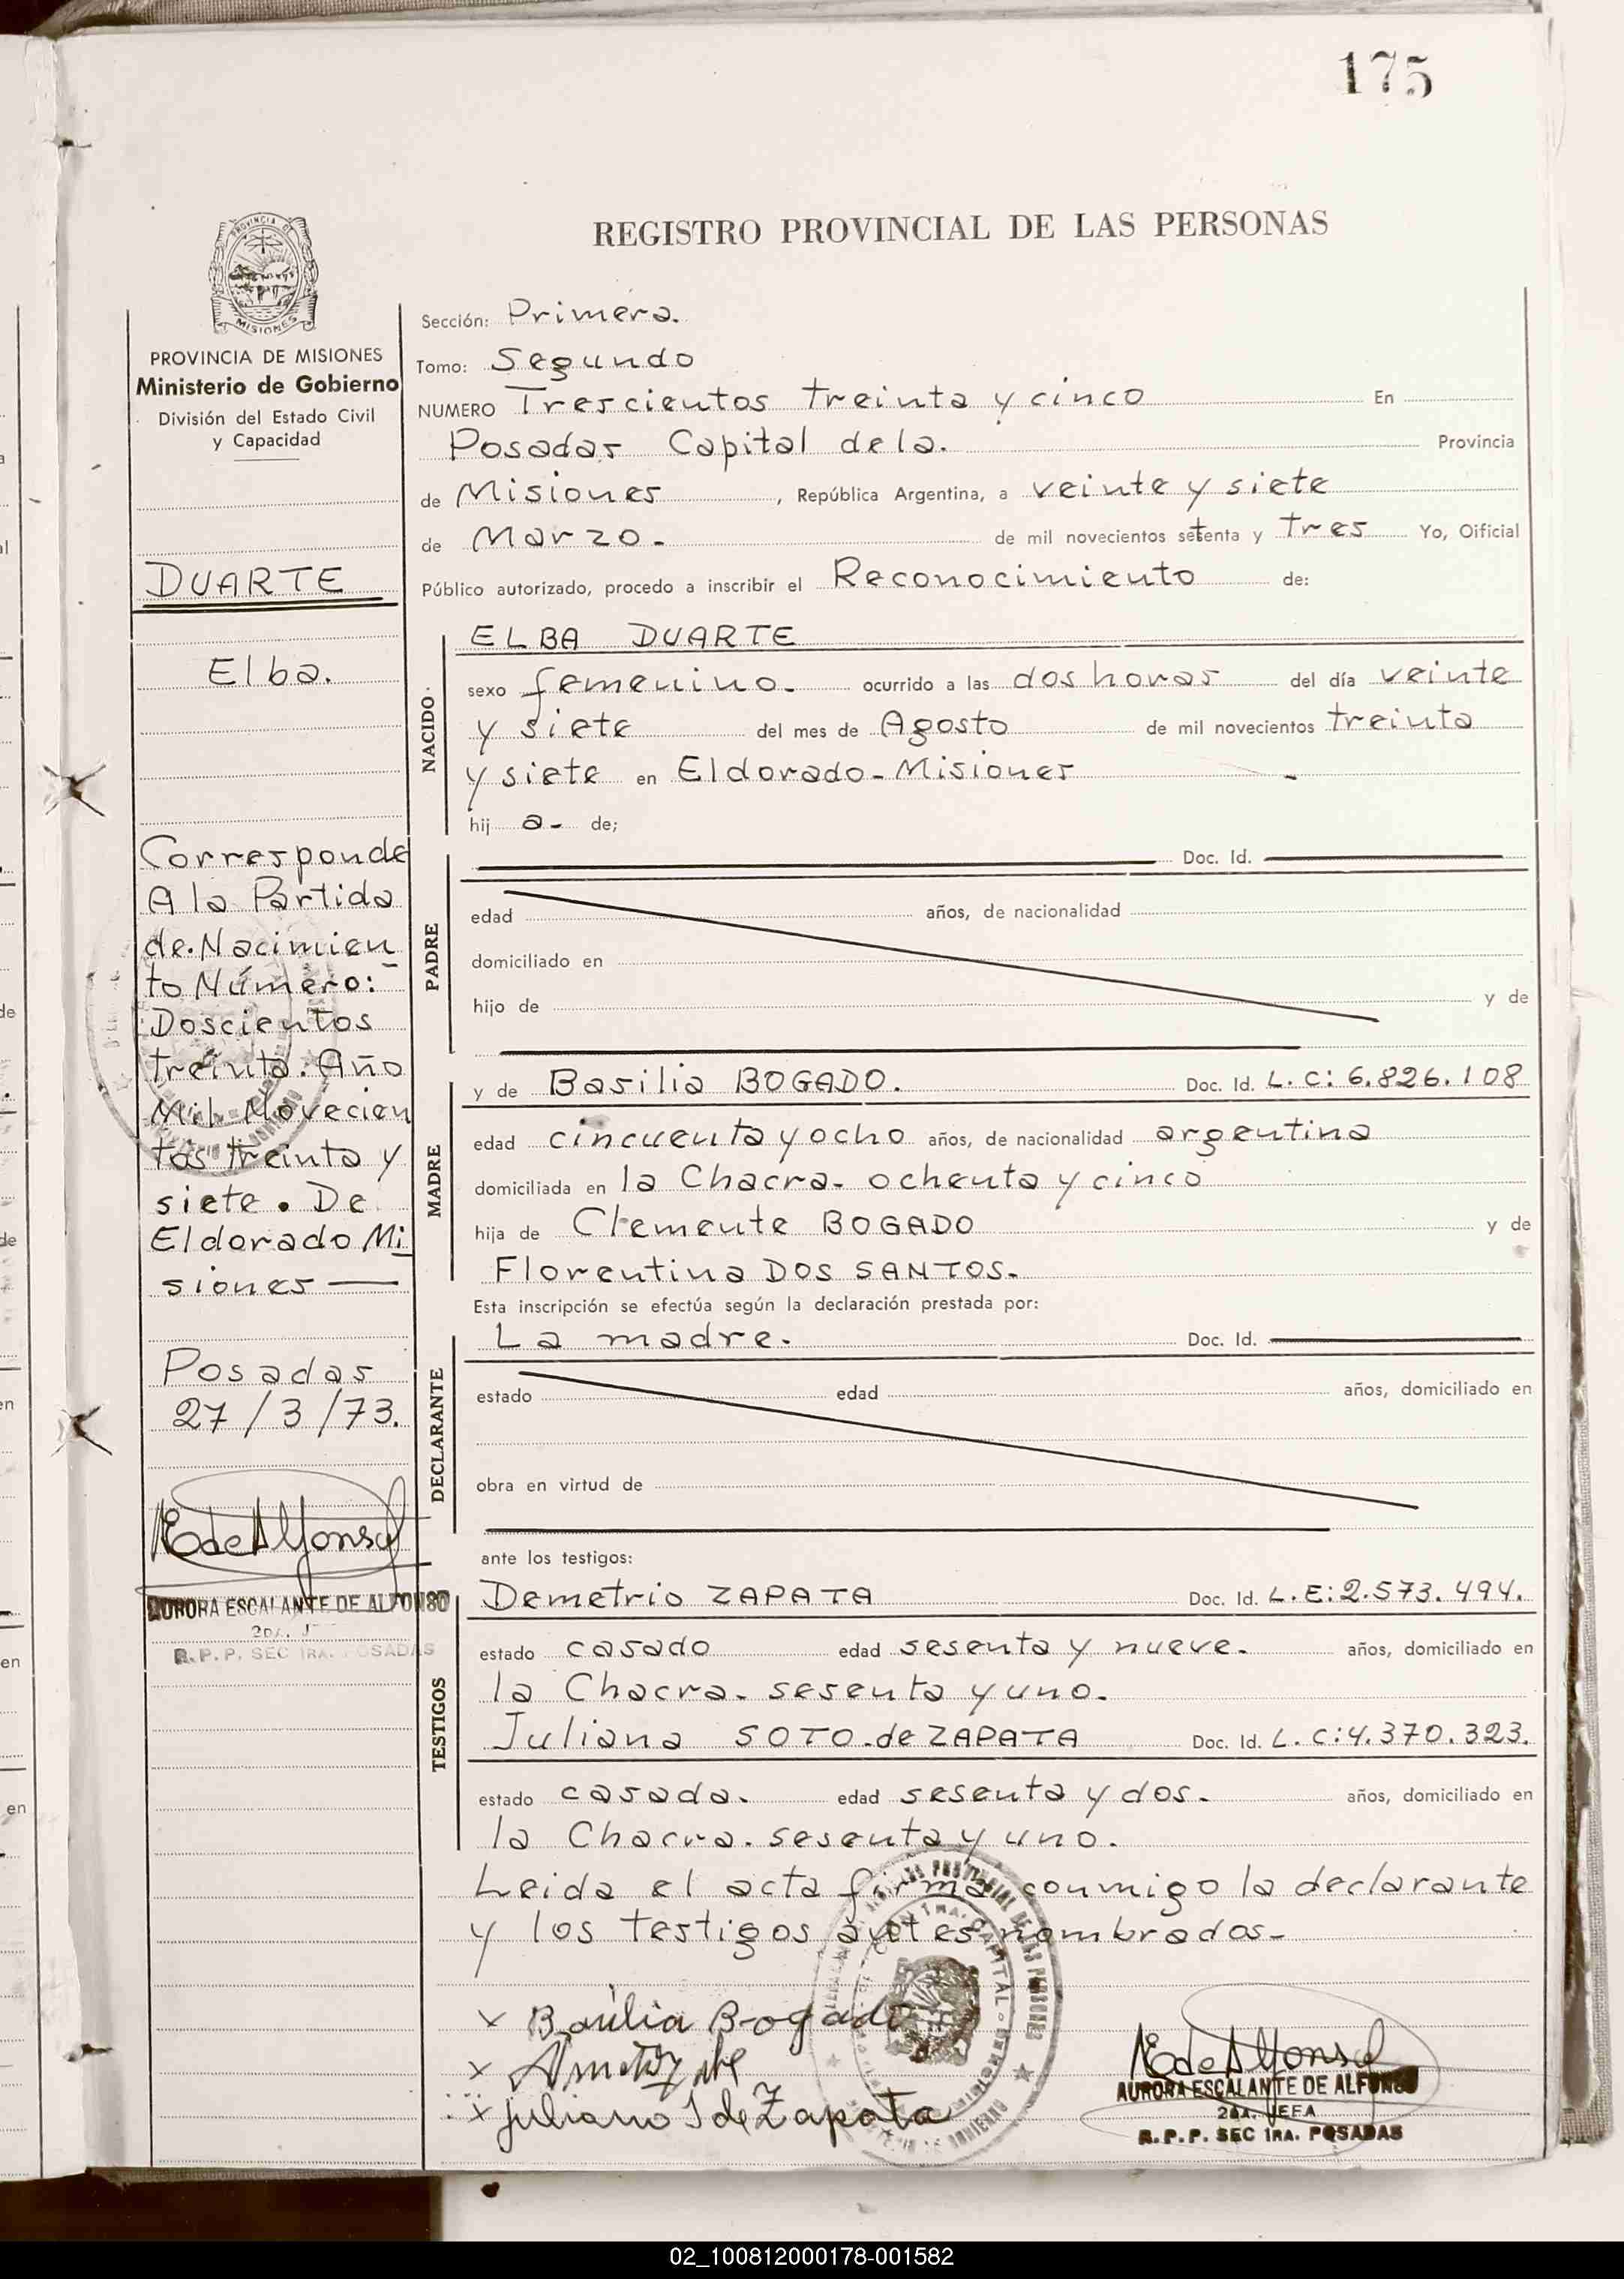 175
REGISTRO PROVINCIAL DE LAS PERSONAS
PROVINCIA DE
MISIONES
PROVINCIA DE MISIONES
Ministerio de Gobierno
División del Estado Civil
y Capacidad
DUARTE
Elba.
Corresponde
A la Partida
de Nacimien
to Número:
Doscientos
treinta. Año
Mil Novecien
tos treinta y
siete. De
Eldorado Mi
siones
Posadas
27/3/73.
AURORA ESCALANTE DE ALFONSO
R.P.P. SEC 1RA. POSADAS
Sección: Primera.
Tomo: Segundo
NUMERO Trescientos treinta y cinco En
Posadas Capital de la. Provincia
de Misiones, República Argentina, a veinte y siete
de Marzo. de mil novecientos setenta y tres Yo, Oificial
Público autorizado, procedo a inscribir el Reconocimiento de:
NACIDO
ELBA DUARTE
sexo femenino. ocurrido a las dos horas del día veinte
y siete del mes de Agosto de mil novecientos treinta
y siete en Eldorado-Misiones
hij a. de;
PADRE
Doc. Id.
edad años, de nacionalidad
domiciliado en
hijo de y de
MADRE
y de Basilia BOGADO. Doc. Id. L.C: 6.826.108
edad cincuenta y ocho años, de nacionalidad argentina
domiciliada en la Chacra. ochenta y cinco
hija de Clemente BOGADO y de
Florentina DOS SANTOS.
Esta inscripción se efectúa según la declaración prestada por:
DECLARANTE
La madre. Doc. Id.
estado edad años, domiciliado en
obra en virtud de
ante los testigos:
TESTIGOS
Demetrio ZAPATA Doc. Id. L.E:2.573.494.
estado casado edad sesenta y nueve. años, domiciliado en
la Chacra. sesenta y uno.
Juliana SOTO de ZAPATA Doc. Id. L.C:4.370.323.
estado casada. edad sesenta y dos. años, domiciliado en
la Chacra. sesenta y uno.
Leida el acta firma conmigo la declarante
y los testigos antes nombrados.
x Basilia Bogado
x
x juliana S de Zapata
AURORA ESCALANTE DE ALFONSO
2DA. JEFA
R.P.P. SEC 1RA. POSADAS
02_100812000178-001582